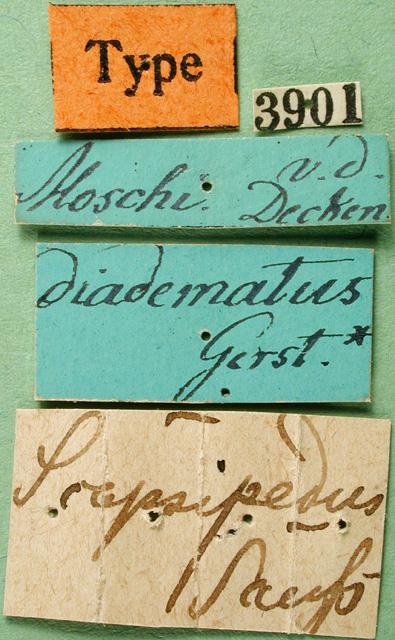 Type
3901
Moschi. v.d.
Decken.
diadematus
Gerst.*
Scapsipedus
Sauss